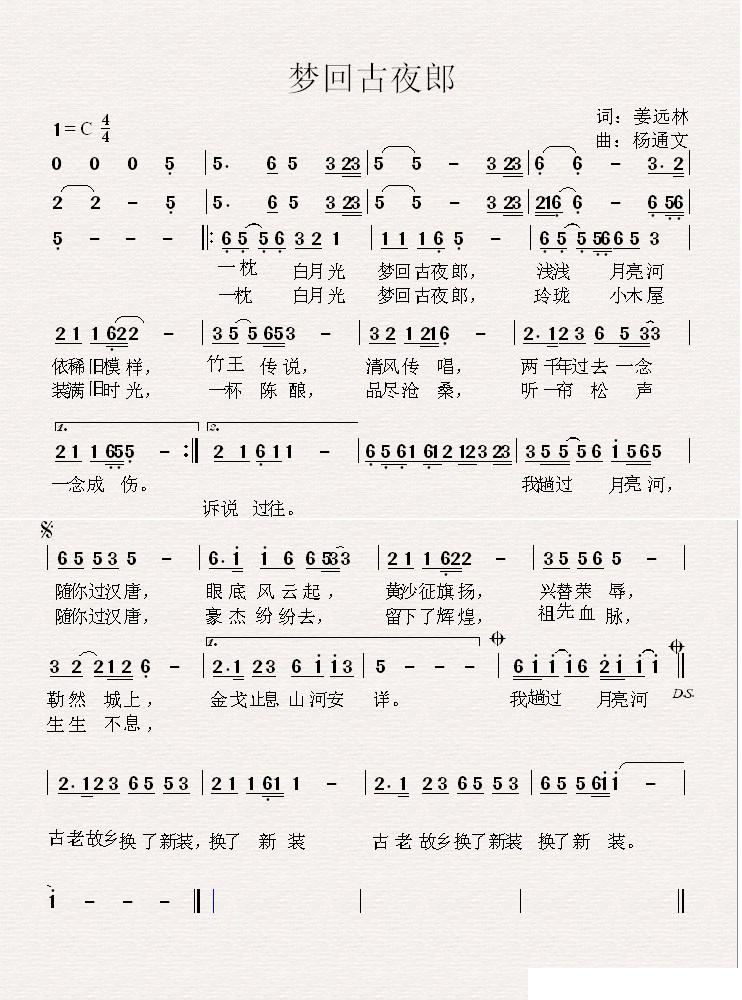 梦回古夜郎
1=C 4/4
词：姜远林
曲：杨通文
0 0 0 5 | 5· 6 5 3 23 | 5 5 - 3 23 | 6 6 - 3·2 |
2 2 - 5 | 5· 6 5 3 23 | 5 5 - 3 23 | 216 6 - 6 56 |
5 - - - ‖: 6 5 5 6 3 2 1 | 1 1 1 6 5 - | 6 5 5 56 6 5 3 |
一枕 白月光 梦回古夜郎， 浅浅 月亮河
一枕 白月光 梦回古夜郎， 玲珑 小木屋
2 1 1 622 - | 3 5 5 653 - | 3 2 1 216 - | 2·123 6 533 |
依稀旧模样， 竹王 传说， 清风传 唱， 两千年过去一念
装满旧时光， 一杯 陈酿， 品尽沧 桑， 听一帘 松 声
1. 2.
2 1 1 655 - :‖ 2 1 6 1 1 - | 6 5 6 1 6 1 2 1 2 3 2 3 | 3 5 5 5 6 1 5 6 5 |
一念成 伤。 我趟过 月亮河，
诉说 过往。
6 5 5 3 5 - | 6·1 1 6 6 533 | 2 1 1 622 - | 3 5 5 6 5 - |
随你过汉唐， 眼底 风云起， 黄沙征旗扬， 兴替荣 辱，
随你过汉唐， 豪杰纷纷去， 留下了辉煌， 祖先血 脉，
1.
3 2 2 1 2 6 - | 2·1 2 3 6 1 1 3 | 5 - - - | 6 1 1 1 6 2 1 1 1 ‖
勒然 城上， 金戈止息 山河安 详。 我趟过 月亮河
D.S.
生生 不息，
2·123 6 5 5 3 | 2 1 1 61 1 - | 2·1 2 3 6 5 5 3 | 6 5 5 61 1 - |
古老故乡换了新装，换了 新 装 古老故乡换了新装 换了新 装。
1 - - - ‖